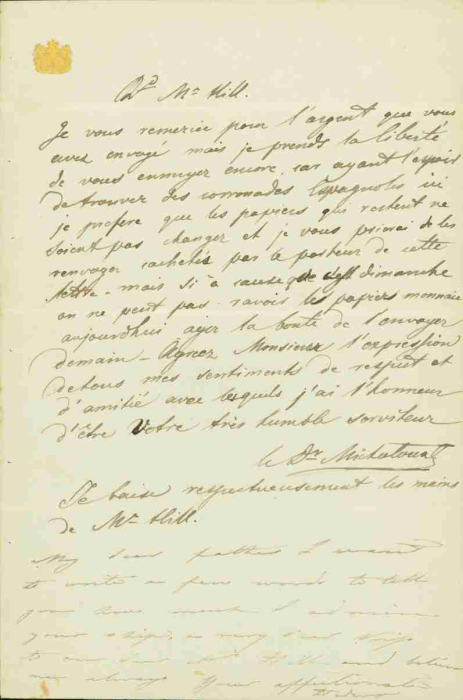 Dr Mr Hill.
Je vous remercie pour l'argent que vous
avez envoyé mais je prends la liberté
de vous ennuyer encore, car ayant l'espoir
de trouver des commodes Espagnoles ici
je prefere que les papiers qui restent ne
soient pas changer et je vous prierai de les
renvoyer cachetés par le porteur de cette
lettre - mais si à cause que c'est dimanche
on ne peut pas ravoir les papiers monnaie
aujourdhui ayez la bonté de l'envoyer
demain - Agreez Monsieur l'expression
de tous mes sentiments de respect et
d'amitié avec lesquels j'ai l'honneur
d'être Votre très humble serviteur
le Dr
Je baise respectueusement les mains
de Mr Hill.
My dear father I want
to write a few words to tell
you how much I admire
your ship a very dear
to our dear Mr Hill and believe
me always Your affectionate